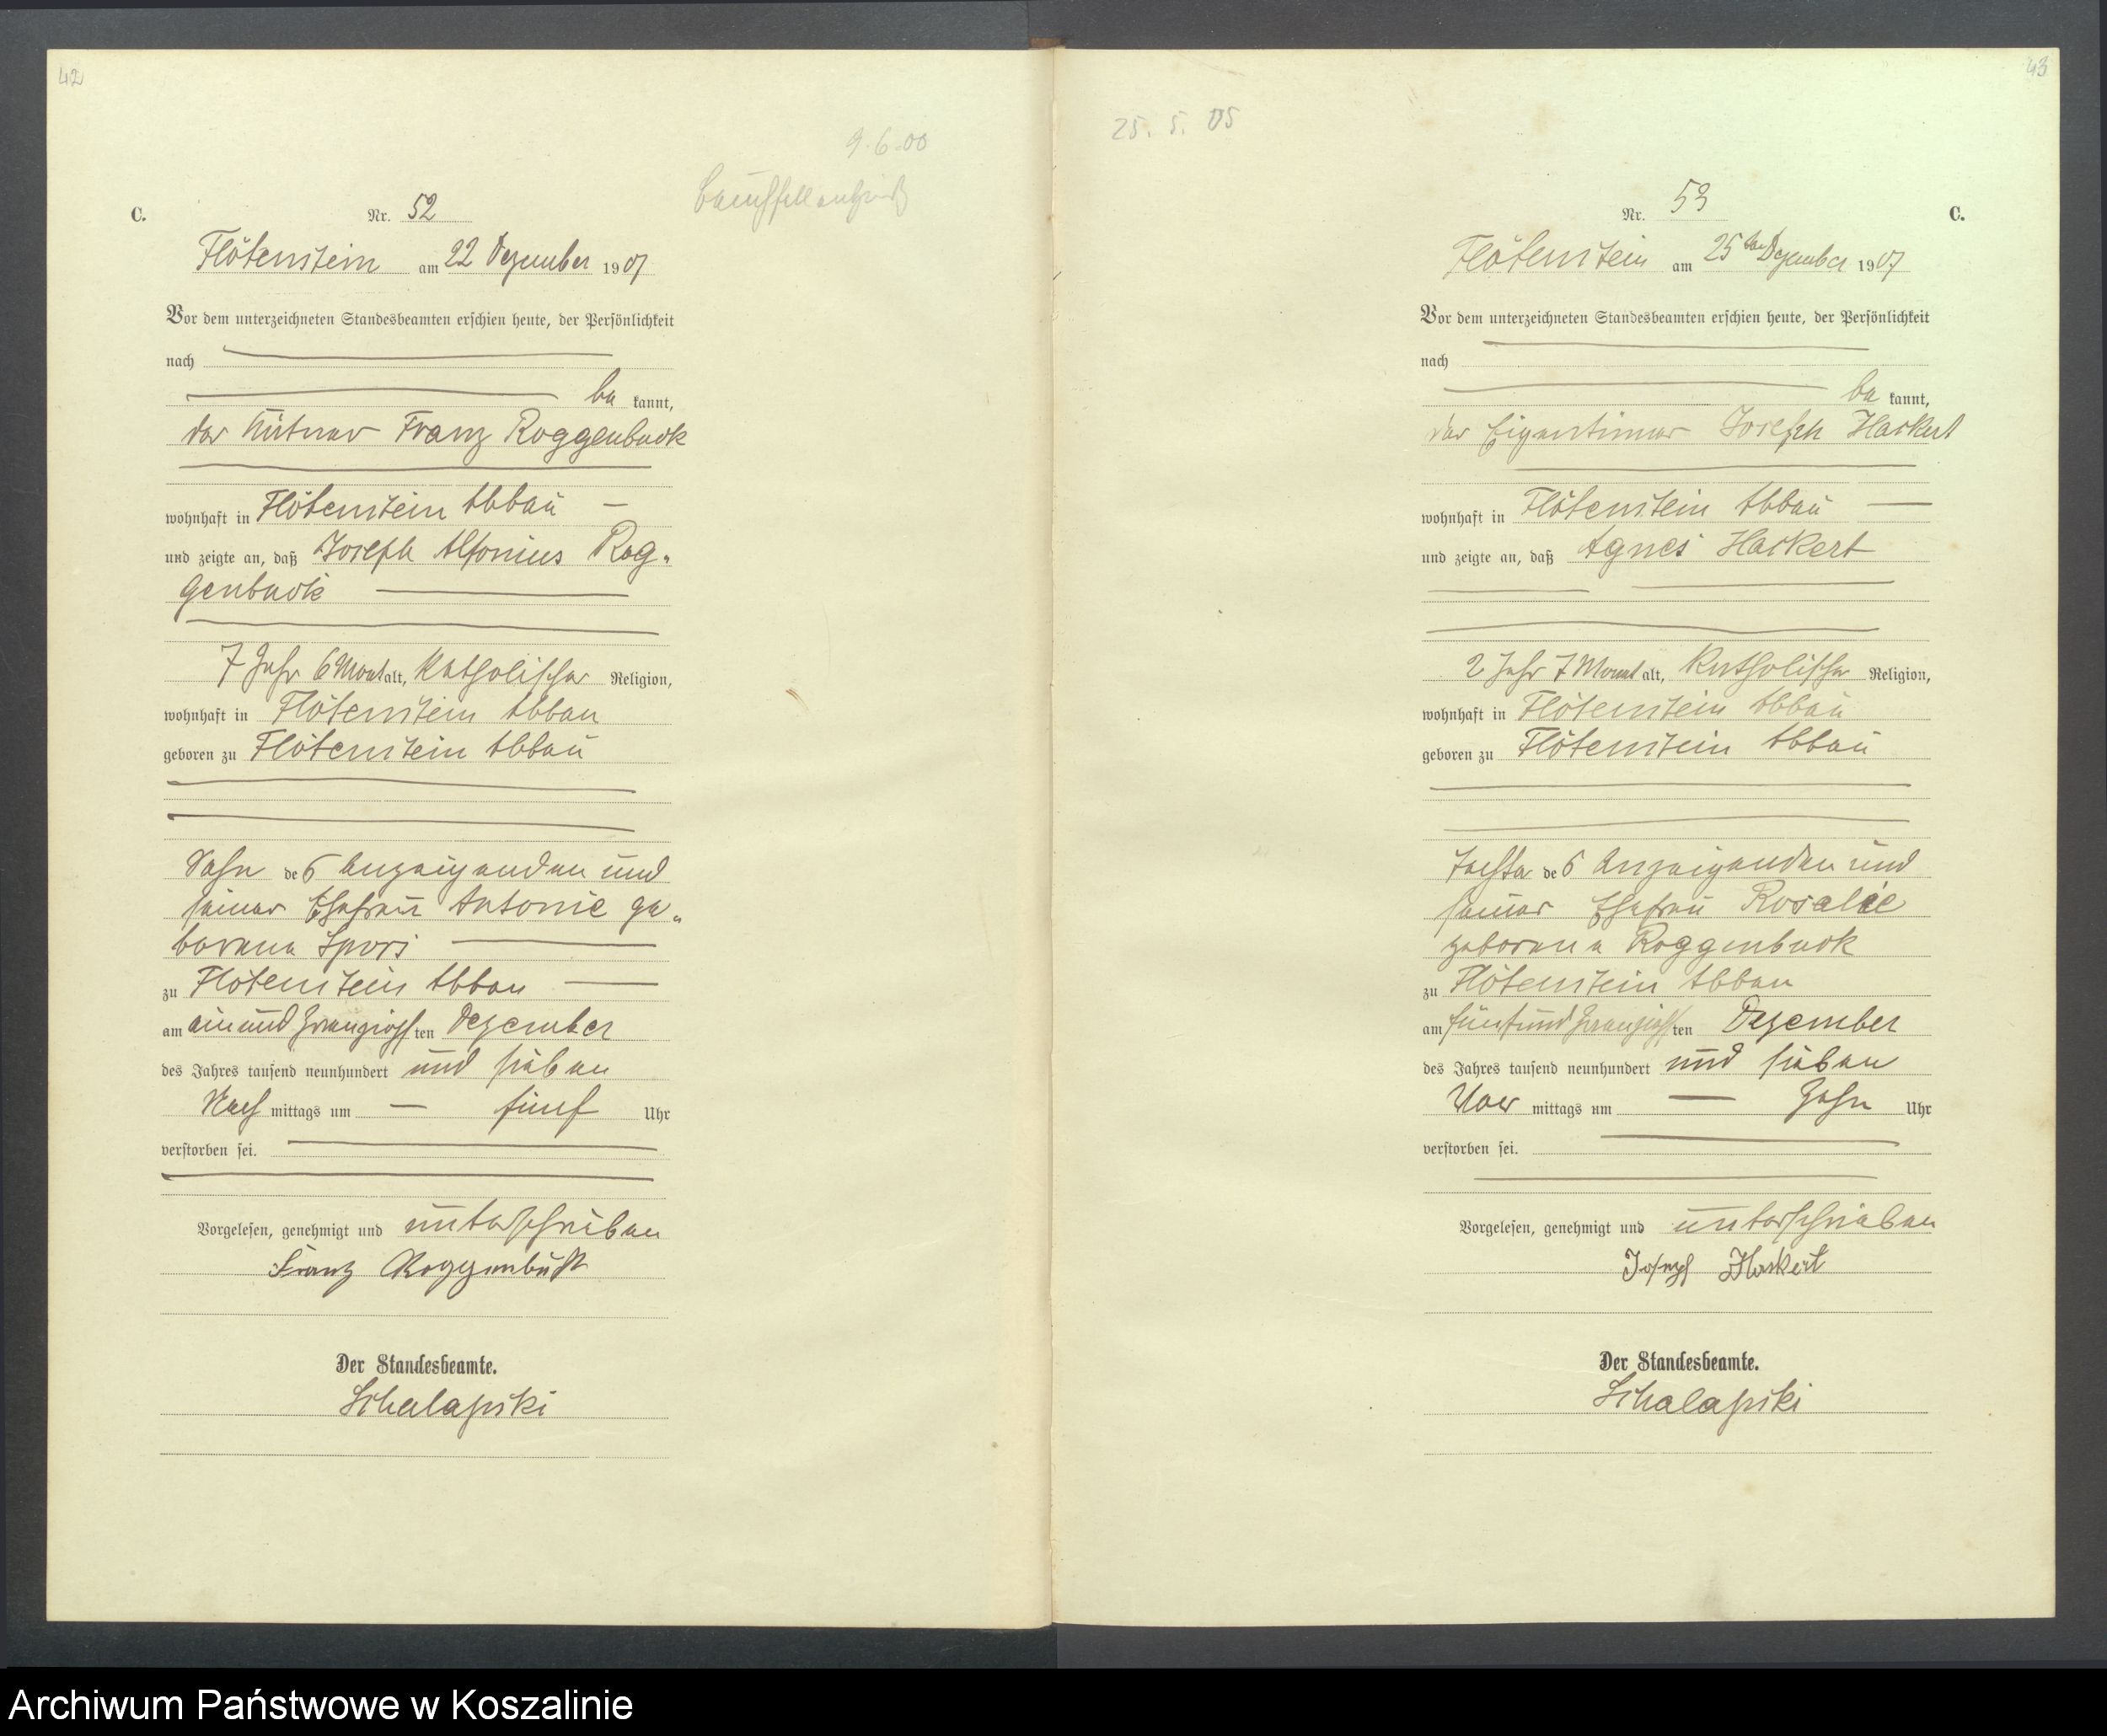 42
9.6.00
C.
Nr. 52
Flötenstein am 22 Dezember 1907
Vor dem unterzeichneten Standesbeamten erschien heute, der Persönlichkeit
nach
be kannt,
der Kätner Franz Roggenbuck
wohnhaft in Flötenstein Abbau
und zeigte an, daß Joseph Alfonius Rog-
genbuck
7 Jahr 6 Monat alt, katholischer Religion,
wohnhaft in Flötenstein Abbau
geboren zu Flötenstein Abbau
Sohn des Anzeigenden und
seiner Ehefrau Antonie ge-
borene Spors
zu Flötenstein Abbau
am einundzwanzigsten Dezember
des Jahres tausend neunhundert und sieben
Nach mittags um fünf Uhr
verstorben sei.
Vorgelesen, genehmigt und unterschrieben
Franz Roggenbuck
Der Standesbeamte.
Schalapski
43
25. 5. 05
Nr. 53
C.
Flötenstein am 25ten Dezember 1907
Vor dem unterzeichneten Standesbeamten erschien heute, der Persönlichkeit
nach
be kannt,
der Eigentümer Joseph Hackert
wohnhaft in Flötenstein Abbau
und zeigte an, daß Agnes Hackert
2 Jahr 7 Monat alt, katholischer Religion,
wohnhaft in Flötenstein Abbau
geboren zu Flötenstein Abbau
Tochter des Anzeigenden und
seiner Ehefrau Rosalie
geborene Roggenbuck
zu Flötenstein Abbau
am fünfundzwanzigsten Dezember
des Jahres tausend neunhundert und sieben
Vor mittags um zehn Uhr
verstorben sei.
Vorgelesen, genehmigt und unterschrieben
Joseph Hackert
Der Standesbeamte.
Schalapski
Archiwum Państwowe w Koszalinie